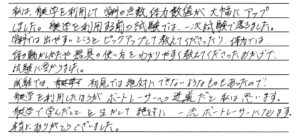 私は、艇学を利用して、学科の点数、体力数値が、大幅にアップ
しました。艇学を利用する前の試験では、一次試験で落ちました。
学科では出やすいところをピックアップして教えてくださったり、体力では
体の動かしかたや器具の使い方を分かりやすく教えてくださったおかげで、
試験に受かりました。
試験では、初見では絶対にできないようなものもあったので、
艇学を利用したほうがボートレーサーへの近道だと私は思います。
艇学で学んだことを生かして絶対に、一流ボートレーサーになります。
本当にありがとうございました。